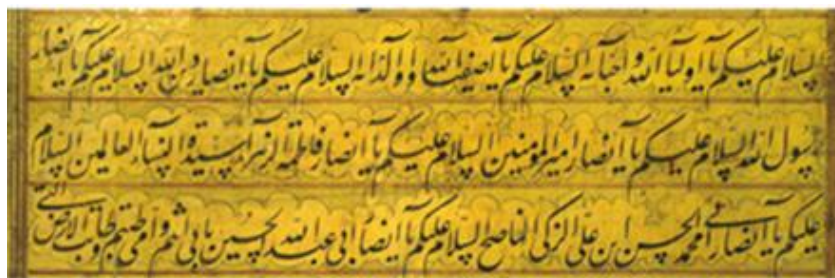 السلام علیکم یا اولیآ الله و احبآئه السلام علیکم یا اصفیآ الله و اودآئه السلام علیکم یا انصار دین الله السلام علیکم یا انصار
رسول الله السلام علیکم یا انصار امیر المؤمنین السلام علیکم یا انصار فاطمة الزهرآ سیدة النسآء العالمین السلام
علیکم یا انصار ابی محمد الحسن ابن علی الزکی الناصح السلام علیکم یا انصار ابی عبد الله الحسین بابی انتم و امی طبتم و طابت الارض التی